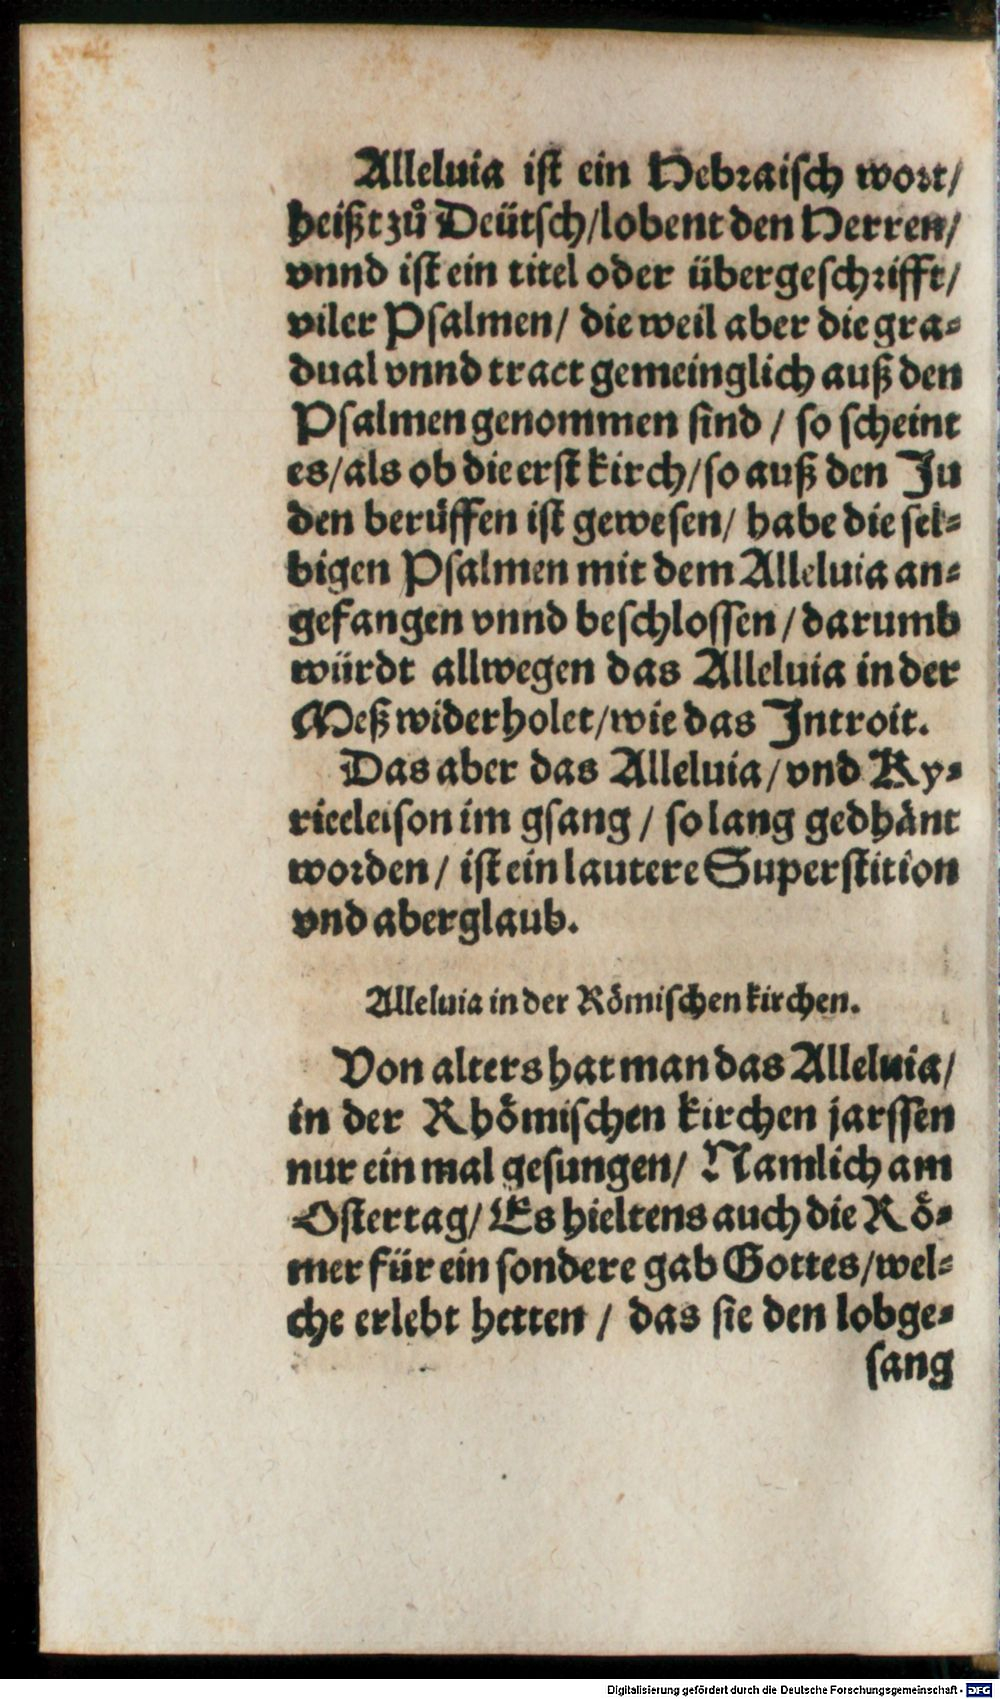 Alleluia ist ein Hebraisch wort/
heißt zů Deütsch/lobent den Herren/
vnnd ist ein titel oder übergeschrifft/
viler Psalmen/ die weil aber die gra-
dual vnnd tract gemeinglich auß den
Psalmen genommen sind / so scheint
es/als ob die erst kirch/so auß den Ju
den berüffen ist gewesen/ habe die sel-
bigen Psalmen mit dem Alleluia an-
gefangen vnnd beschlossen/darumb
würdt allwegen das Alleluia in der
Meß widerholet/wie das Introit.
Das aber das Alleluia/vnd Ky-
rieeleison im gsang / so lang gedhänt
worden/ ist ein lautere Superstition
vnd aberglaub.
Alleluia in der Römischen kirchen.
Von alters hat man das Alleluia/
in der Rhömischen kirchen jarssen
nur ein mal gesungen/ Namlich am
Ostertag/ Es hieltens auch die Rö-
mer für ein sondere gab Gottes/wel-
che erlebt hetten / das sie den lobge-
sang
Digitalisierung gefördert durch die Deutsche Forschungsgemeinschaft - DFG